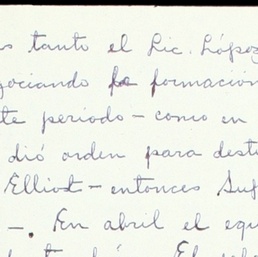 s tanto el Lic. López
gociando la formación
te periodo - como en
dió orden para dest
Elliot - entonces Sup
-. En abril el equ